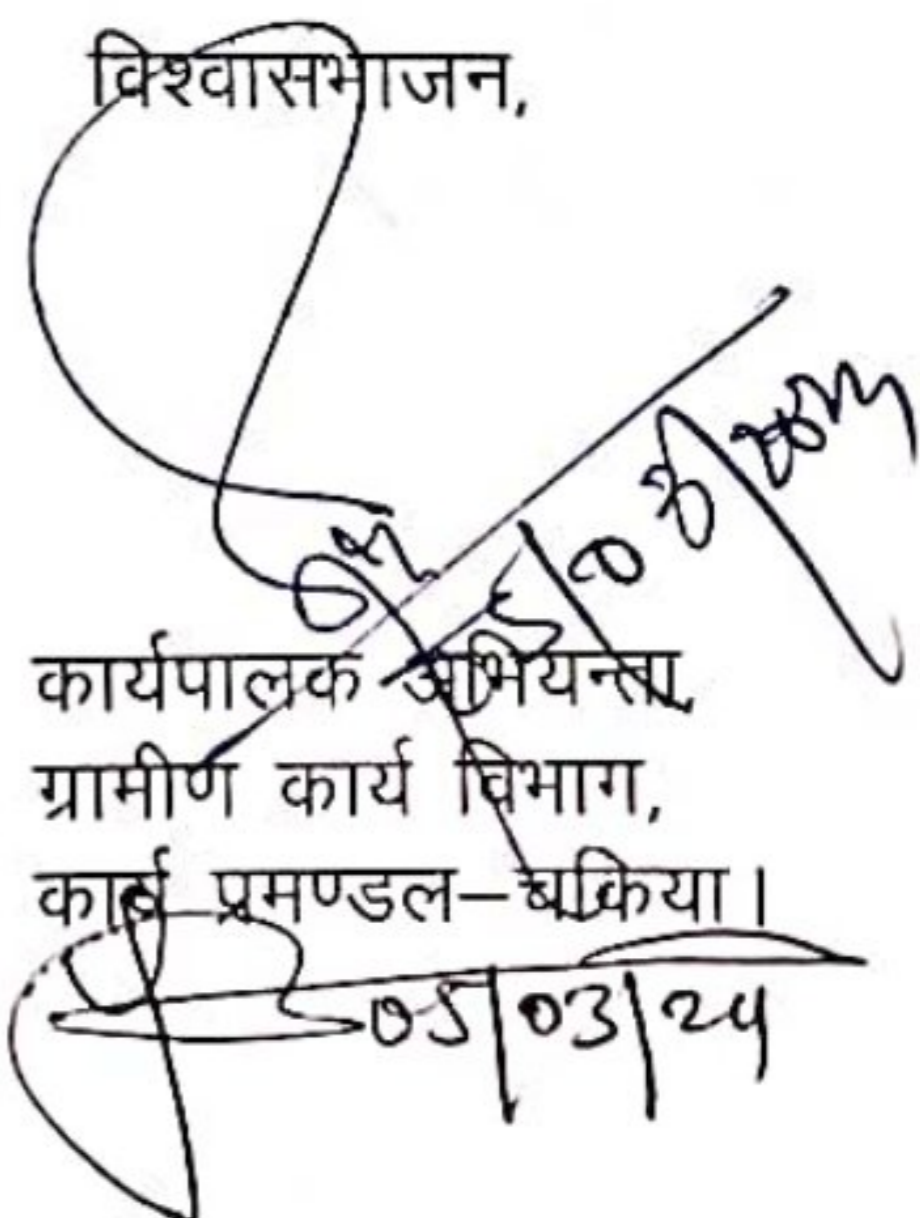 विश्वासभाजन,
कार्यपालक अभियन्ता,
ग्रामीण कार्य विभाग,
कार्य प्रमण्डल–चकिया।
05/03/24